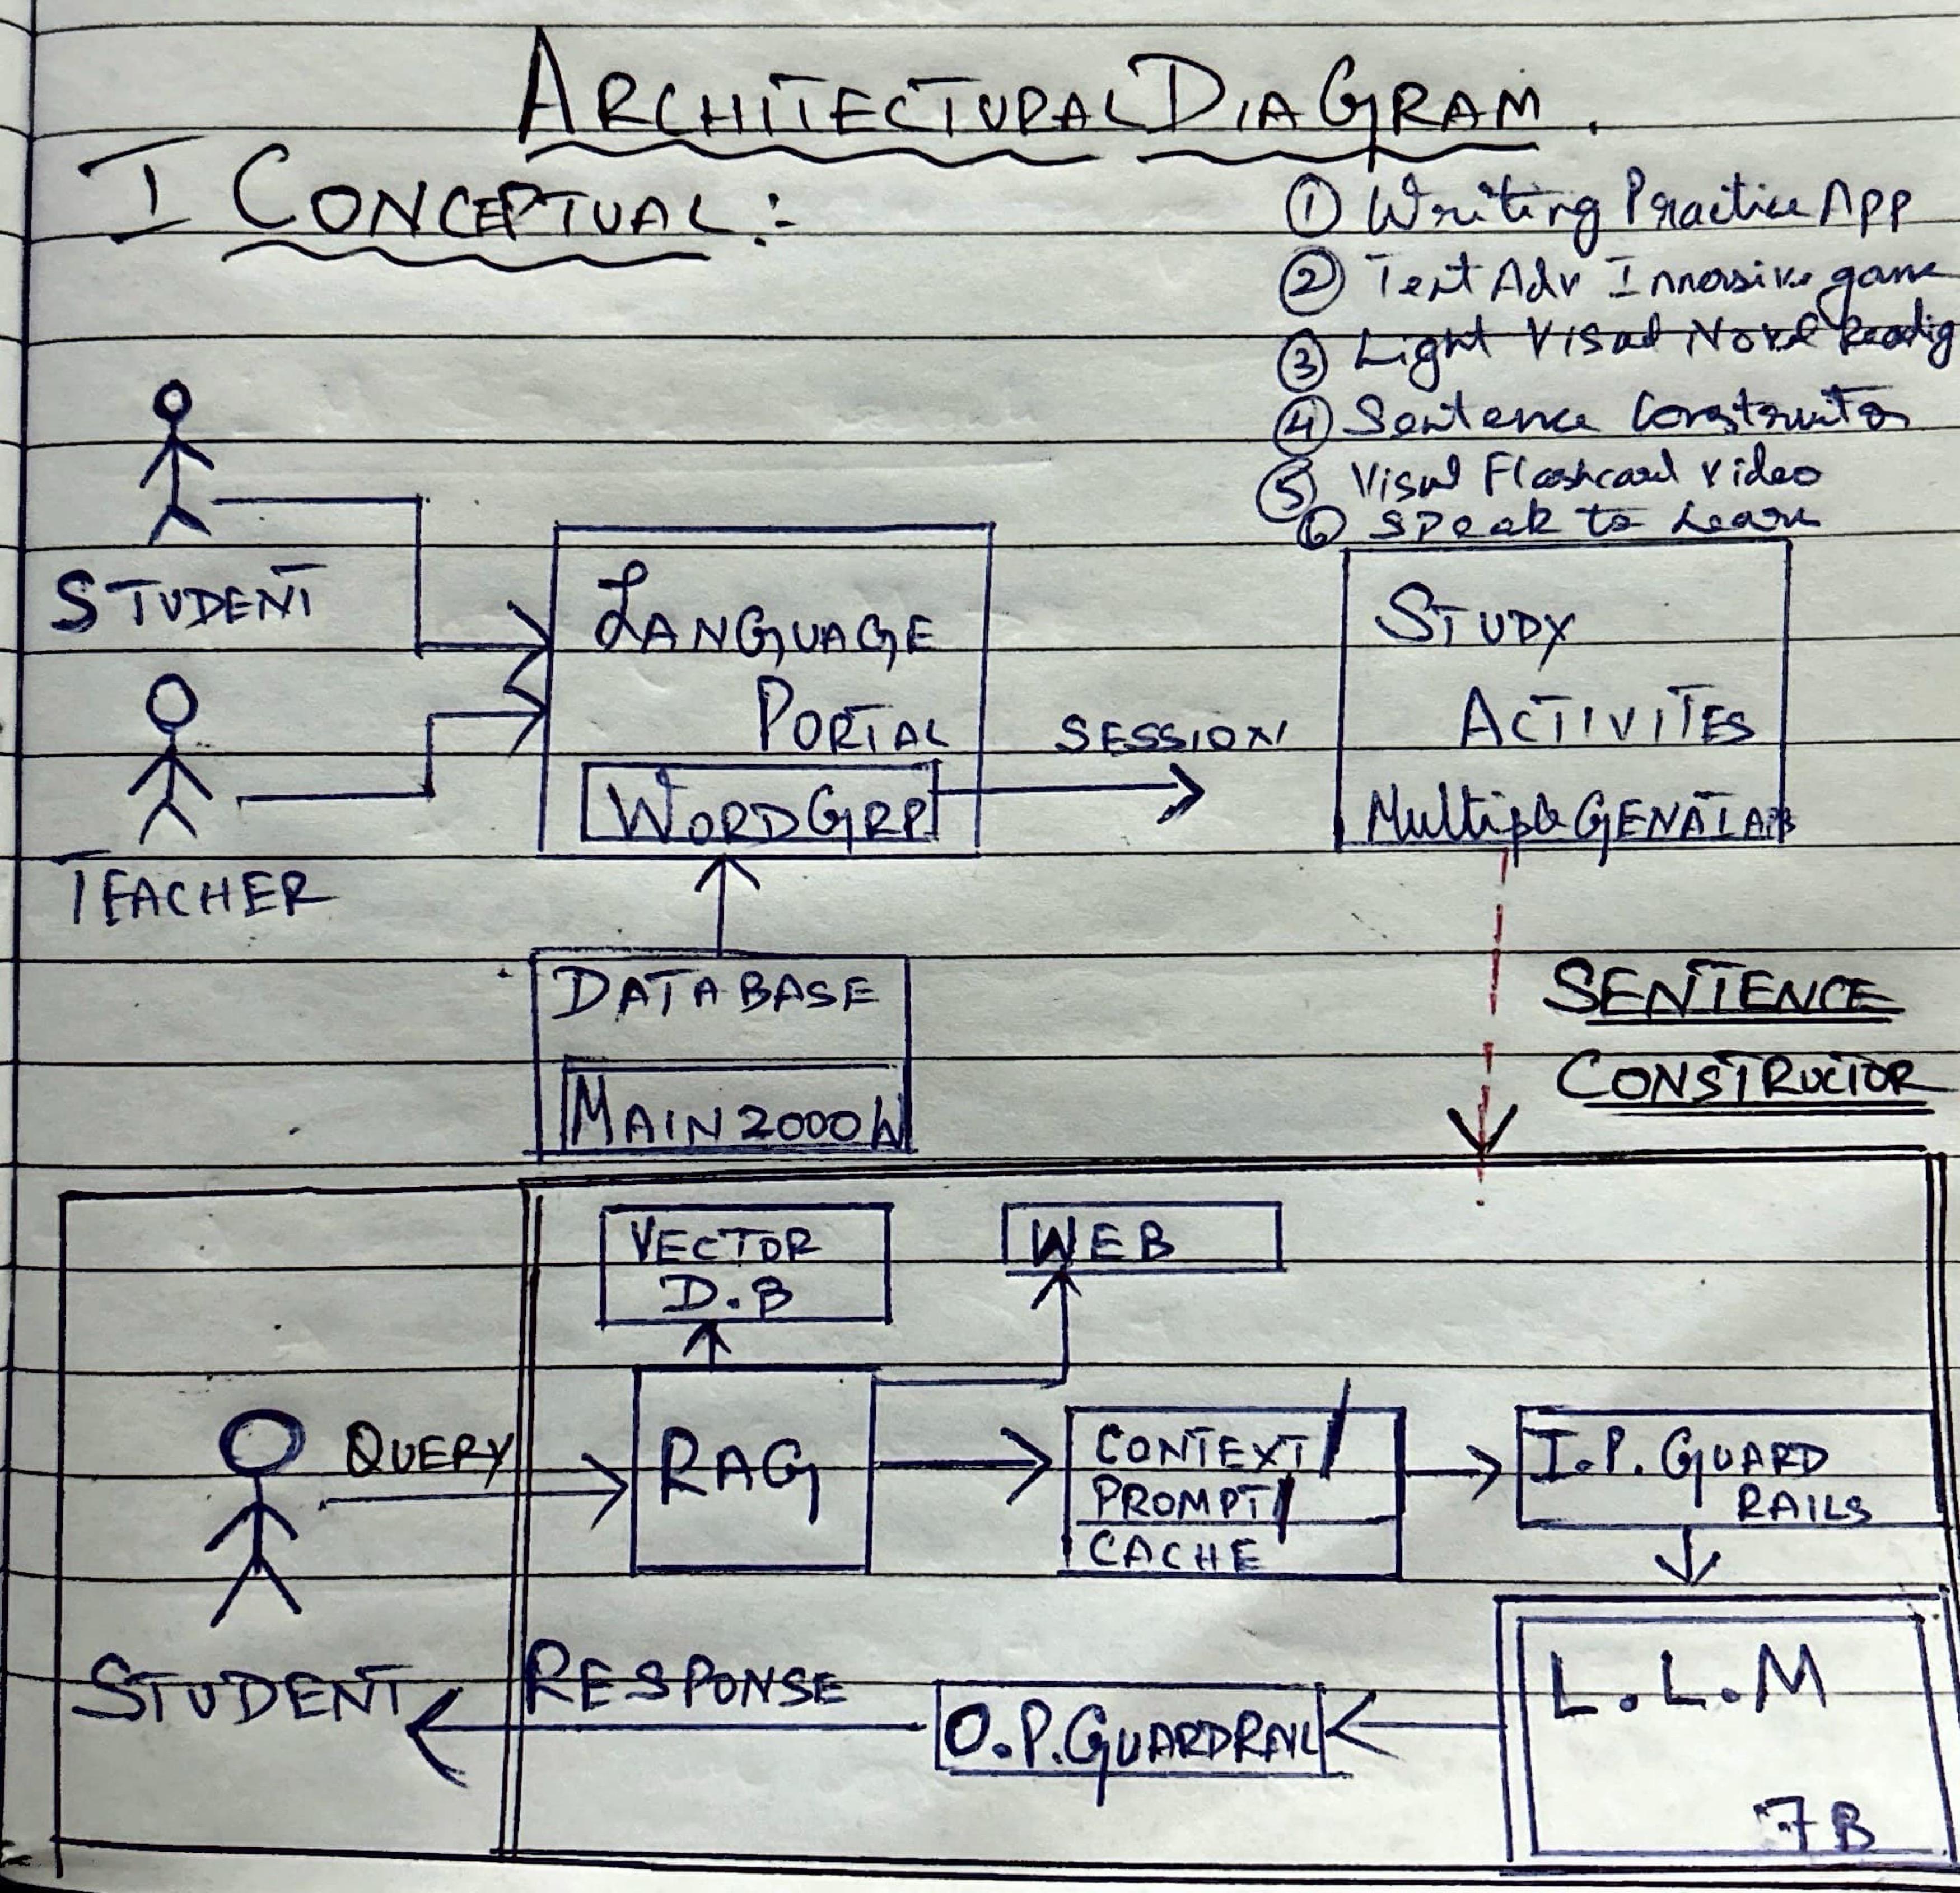 ARCHITECTURAL DIAGRAM.
I CONCEPTUAL:-
① Writing Practice App
② Text Adv Immersive game
③ Light Visual Novel Reading
④ Sentence Constructor
⑤ Visual Flashcard Video
⑥ Speak to Learn
STUDENT
LANGUAGE
PORTAL
WORD GRP
SESSION
STUDY
ACTIVITES
Multiple GENAI
TEACHER
DATABASE
MAIN 2000 W
SENTENCE
CONSTRUCTOR
VECTOR
D.B
WEB
QUERY
RAG
CONTEXT/
PROMPT/
CACHE
I.P. GUARD
RAILS
STUDENT
RESPONSE
O.P. GUARDRAIL
L.L.M
7B